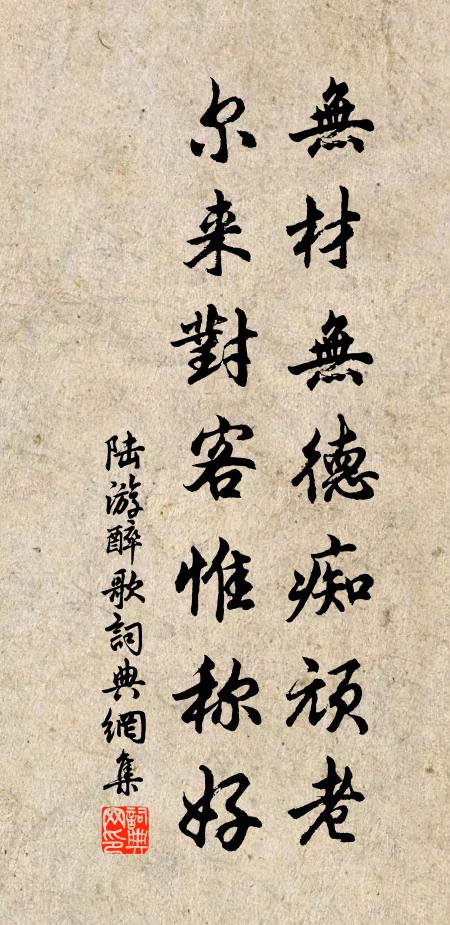 無材無德痴頑老
尔来對客惟称好
陆游醉歌詞典網集
詞典網印